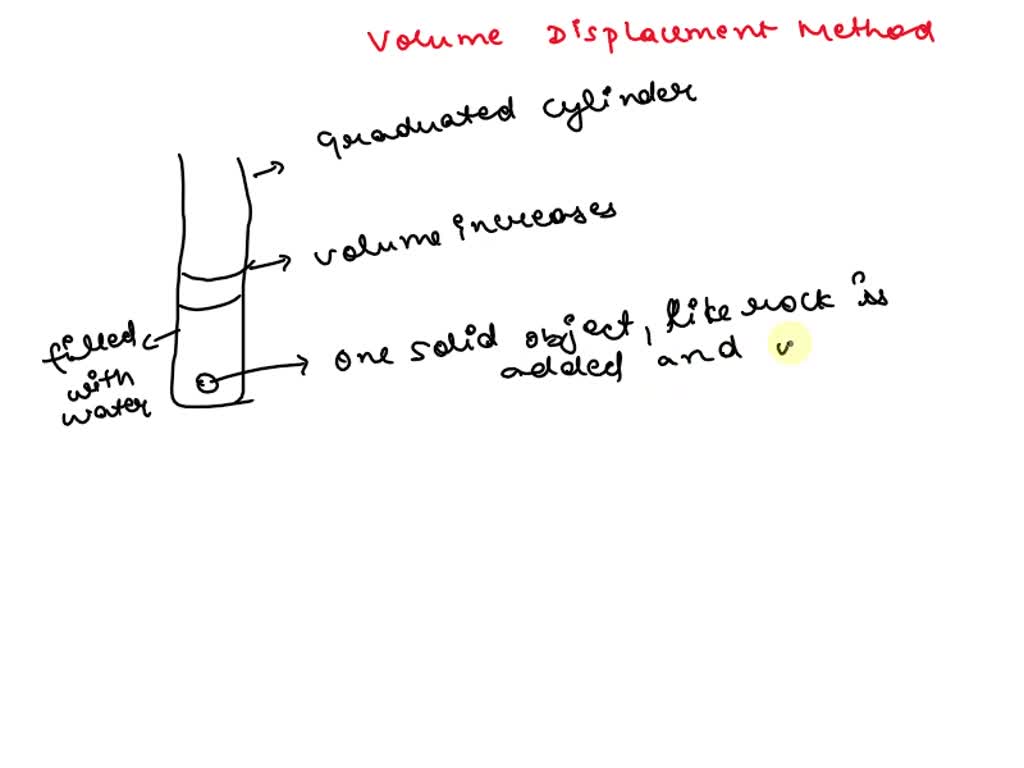 Volume Displacement Method
graduated cylinder
volume increases
filled
with
water
one solid object, like rock is
added and v